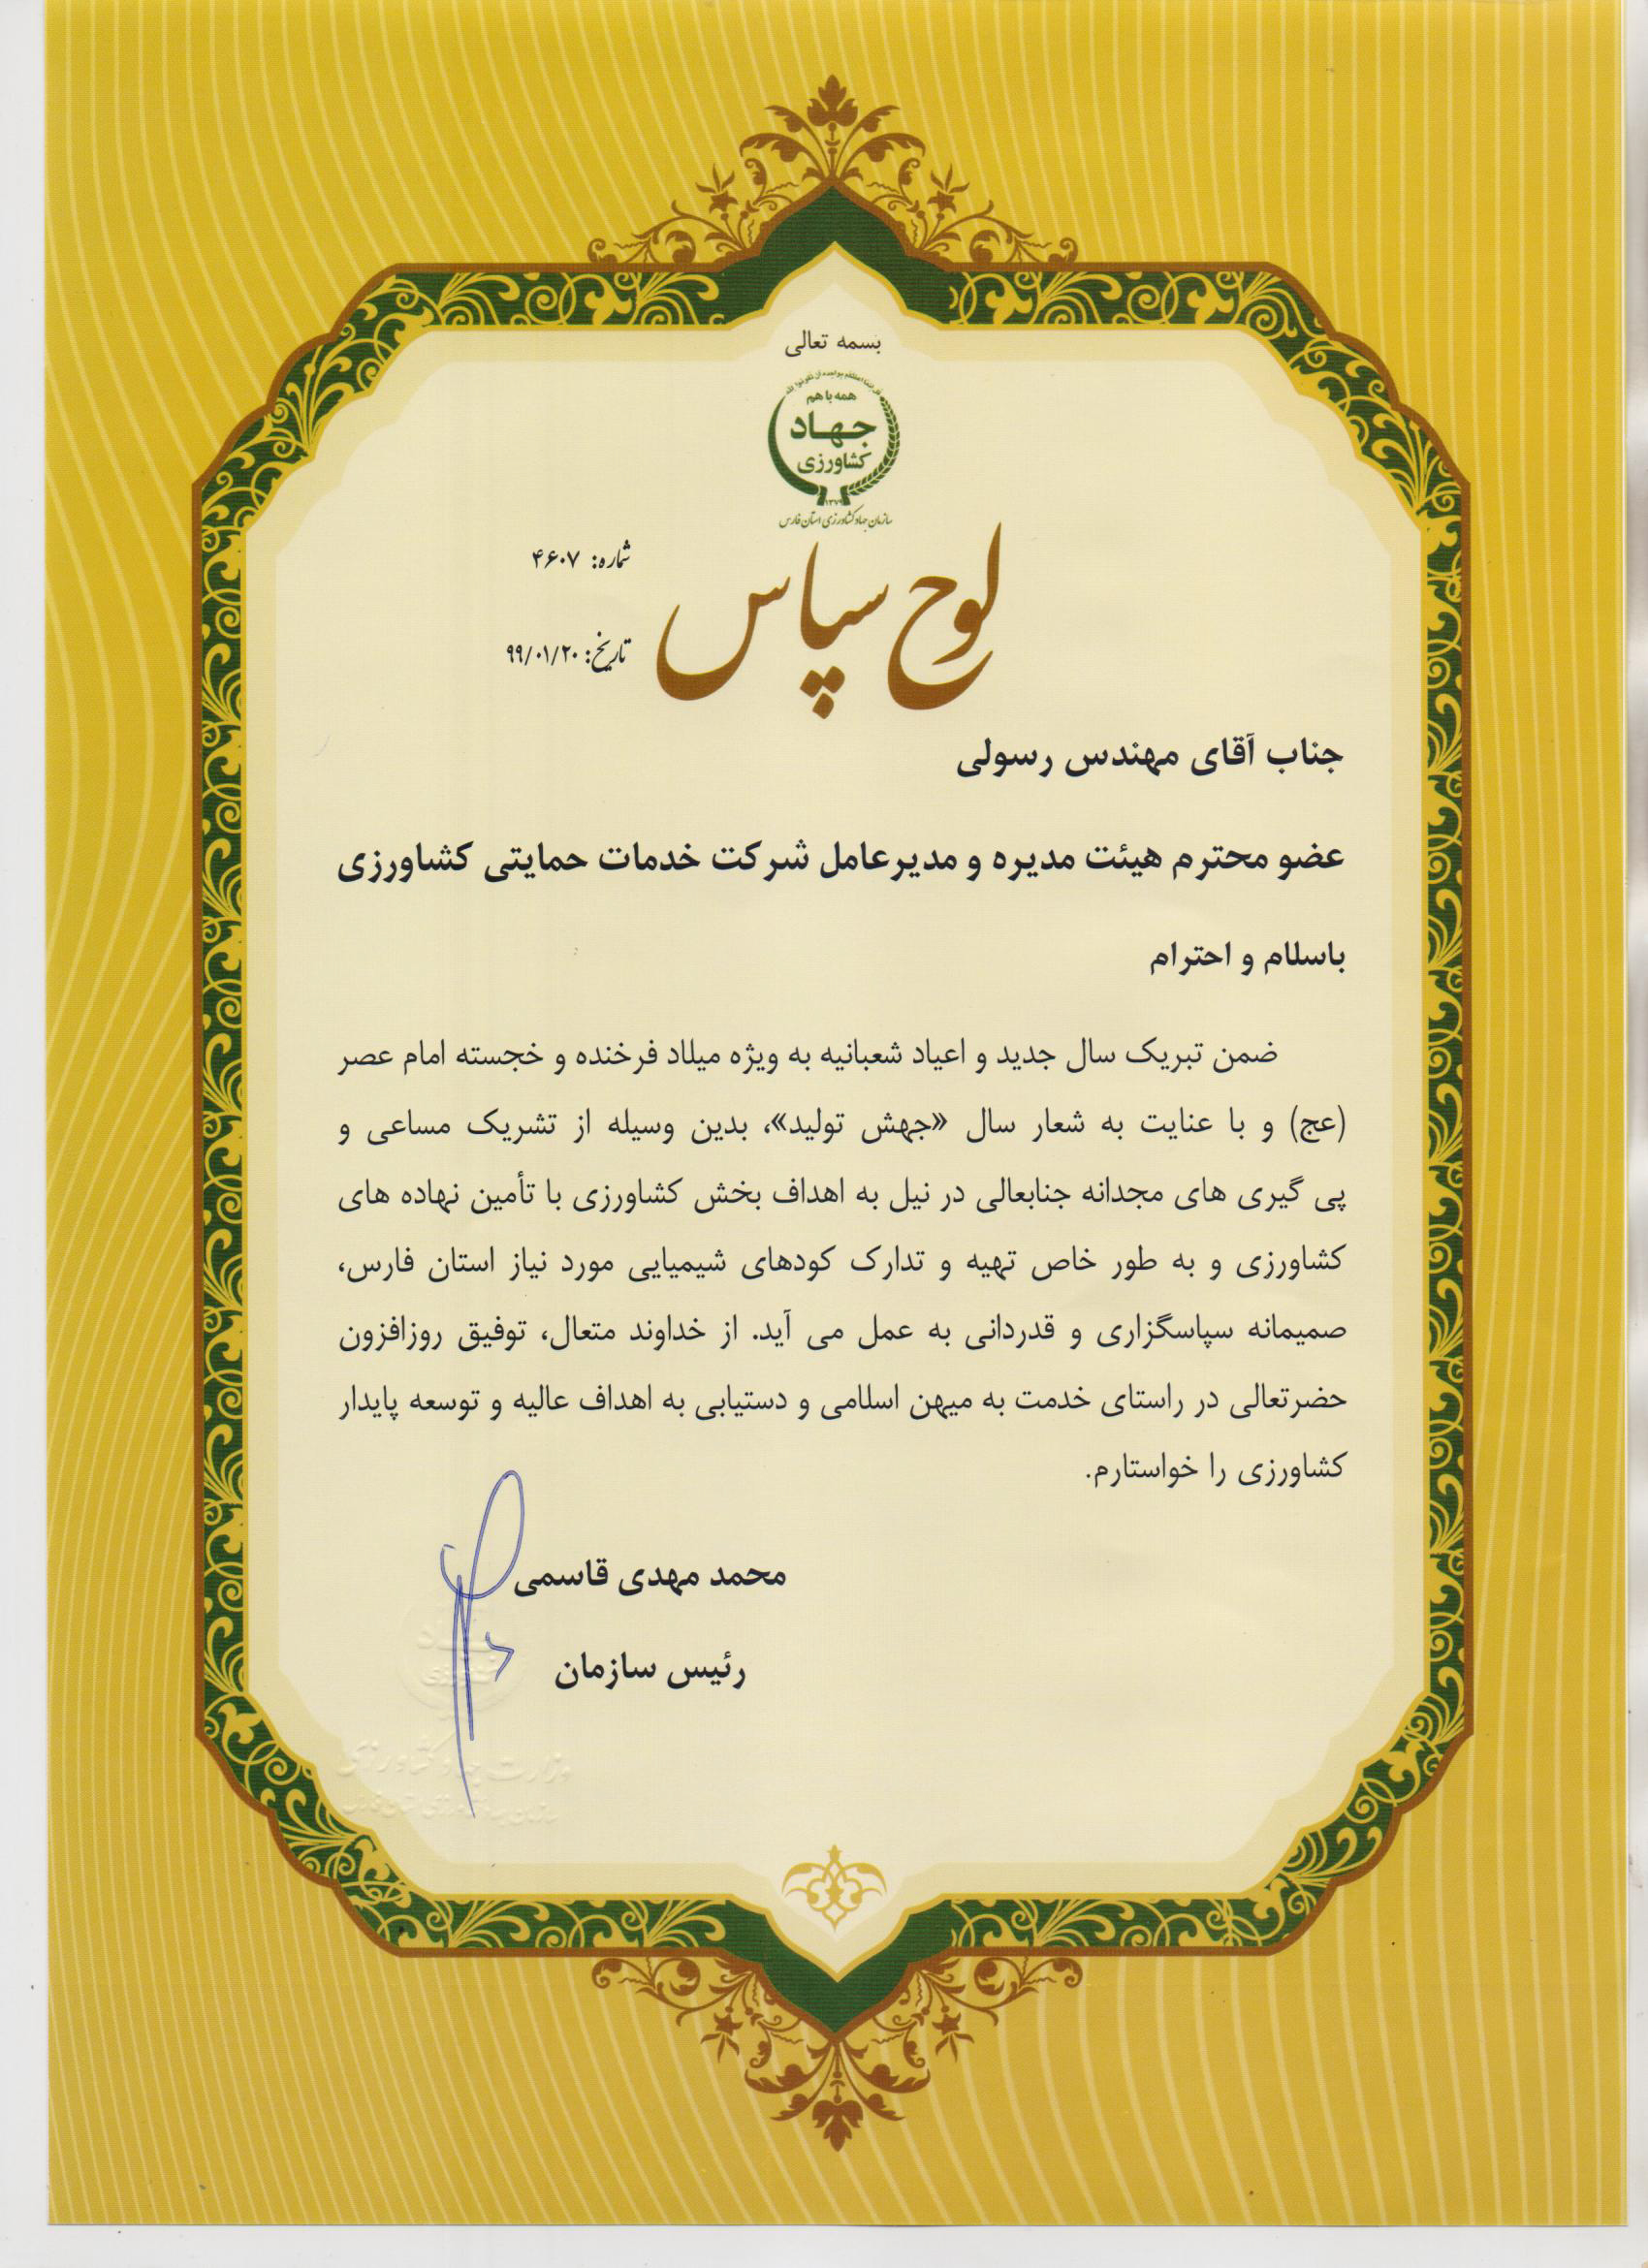 بسمه تعالی
همه با هم
جهاد
کشاورزی
۱۳۷۹
سازمان جهاد کشاورزی استان فارس
لوح سپاس
شماره: ۴۶۰۷
تاریخ: ۹۹/۰۱/۲۰
جناب آقای مهندس رسولی
عضو محترم هیئت مدیره و مدیرعامل شرکت خدمات حمایتی کشاورزی
باسلام و احترام
ضمن تبریک سال جدید و اعیاد شعبانیه به ویژه میلاد فرخنده و خجسته امام عصر
(عج) و با عنایت به شعار سال «جهش تولید»، بدین وسیله از تشریک مساعی و
پی گیری های مجدانه جنابعالی در نیل به اهداف بخش کشاورزی با تأمین نهاده های
کشاورزی و به طور خاص تهیه و تدارک کودهای شیمیایی مورد نیاز استان فارس،
صمیمانه سپاسگزاری و قدردانی به عمل می آید. از خداوند متعال، توفیق روزافزون
حضرتعالی در راستای خدمت به میهن اسلامی و دستیابی به اهداف عالیه و توسعه پایدار
کشاورزی را خواستارم.
محمد مهدی قاسمی
رئیس سازمان